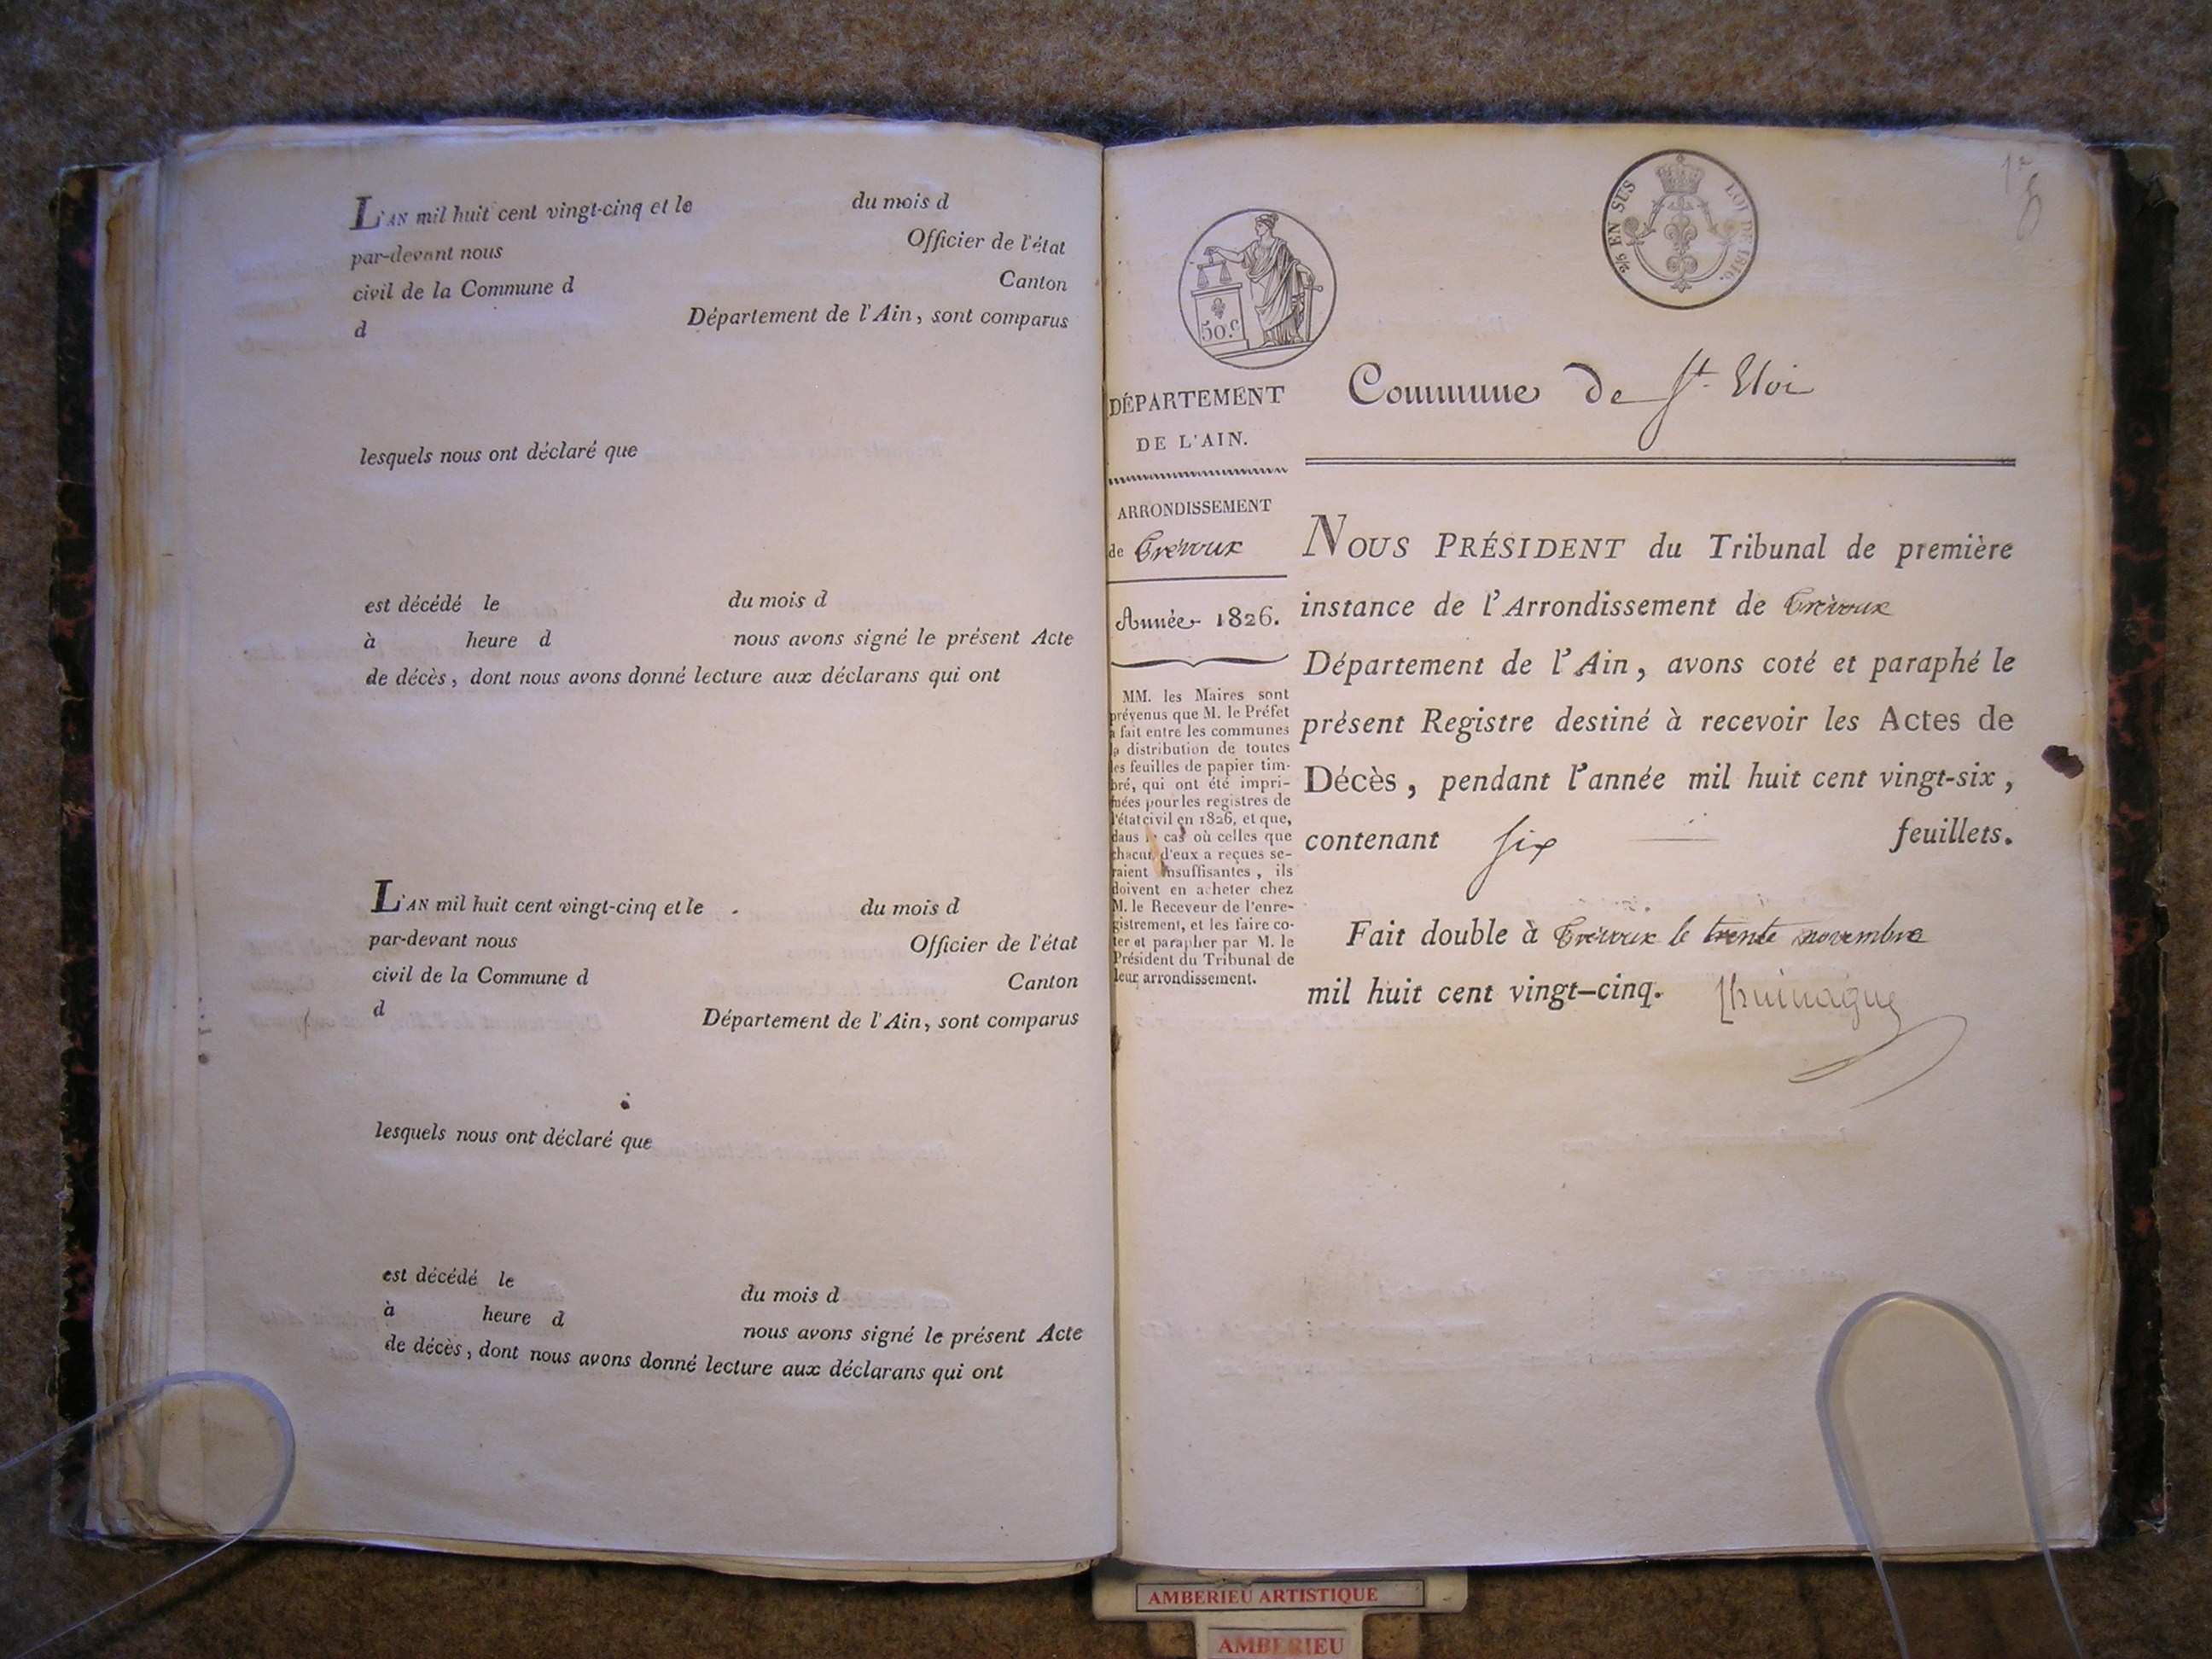 L'AN mil huit cent vingt-cinq et le du mois d
par-devant nous Officier de l'état
civil de la Commune d Canton
d Département de l'Ain, sont comparus
lesquels nous ont déclaré que
est décédé le du mois d
à heure d nous avons signé le présent Acte
de décès, dont nous avons donné lecture aux déclarans qui ont
L'AN mil huit cent vingt-cinq et le du mois d
par-devant nous Officier de l'état
civil de la Commune d Canton
d Département de l'Ain, sont comparus
lesquels nous ont déclaré que
est décédé le du mois d
à heure d nous avons signé le présent Acte
de décès, dont nous avons donné lecture aux déclarans qui ont
50 c
EN SUS LOI DE 1816.
DÉPARTEMENT
DE L'AIN.
ARRONDISSEMENT
de Trévoux
Année 1826.
MM. les Maires sont
prévenus que M. le Préfet
a fait entre les communes
la distribution de toutes
les feuilles de papier tim-
bré, qui ont été impri-
mées pour les registres de
l'état civil en 1826, et que,
dans le cas où celles que
chacun d'eux a reçues se-
raient insuffisantes, ils
doivent en acheter chez
M. le Receveur de l'enre-
gistrement, et les faire co-
ter et parapher par M. le
Président du Tribunal de
leur arrondissement.
Commune de St. Eloi
NOUS PRÉSIDENT du Tribunal de première
instance de l'Arrondissement de Trévoux
Département de l'Ain, avons coté et paraphé le
présent Registre destiné à recevoir les Actes de
Décès, pendant l'année mil huit cent vingt-six,
contenant six feuillets.
Fait double à Trévoux le trente novembre
mil huit cent vingt-cinq.
AMBERIEU ARTISTIQUE
AMBERIEU